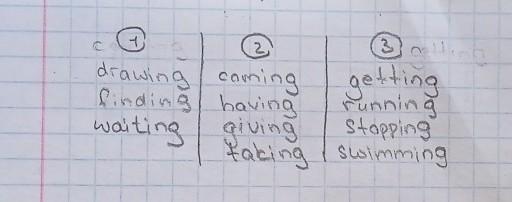 1 2 3
drawing coming getting
finding having running
waiting giving stopping
taking swimming